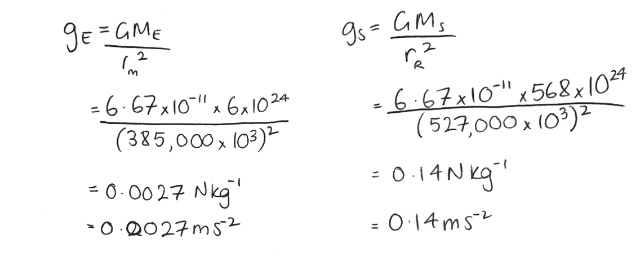 gE = GME / rm²
= 6.67x10⁻¹¹ x 6x10²⁴ / (385,000 x 10³)²
= 0.0027 Nkg⁻¹
= 0.0027 ms⁻²
gs = GMs / rR²
= 6.67x10⁻¹¹ x 568x10²⁴ / (527,000 x 10³)²
= 0.14 N kg⁻¹
= 0.14 ms⁻²